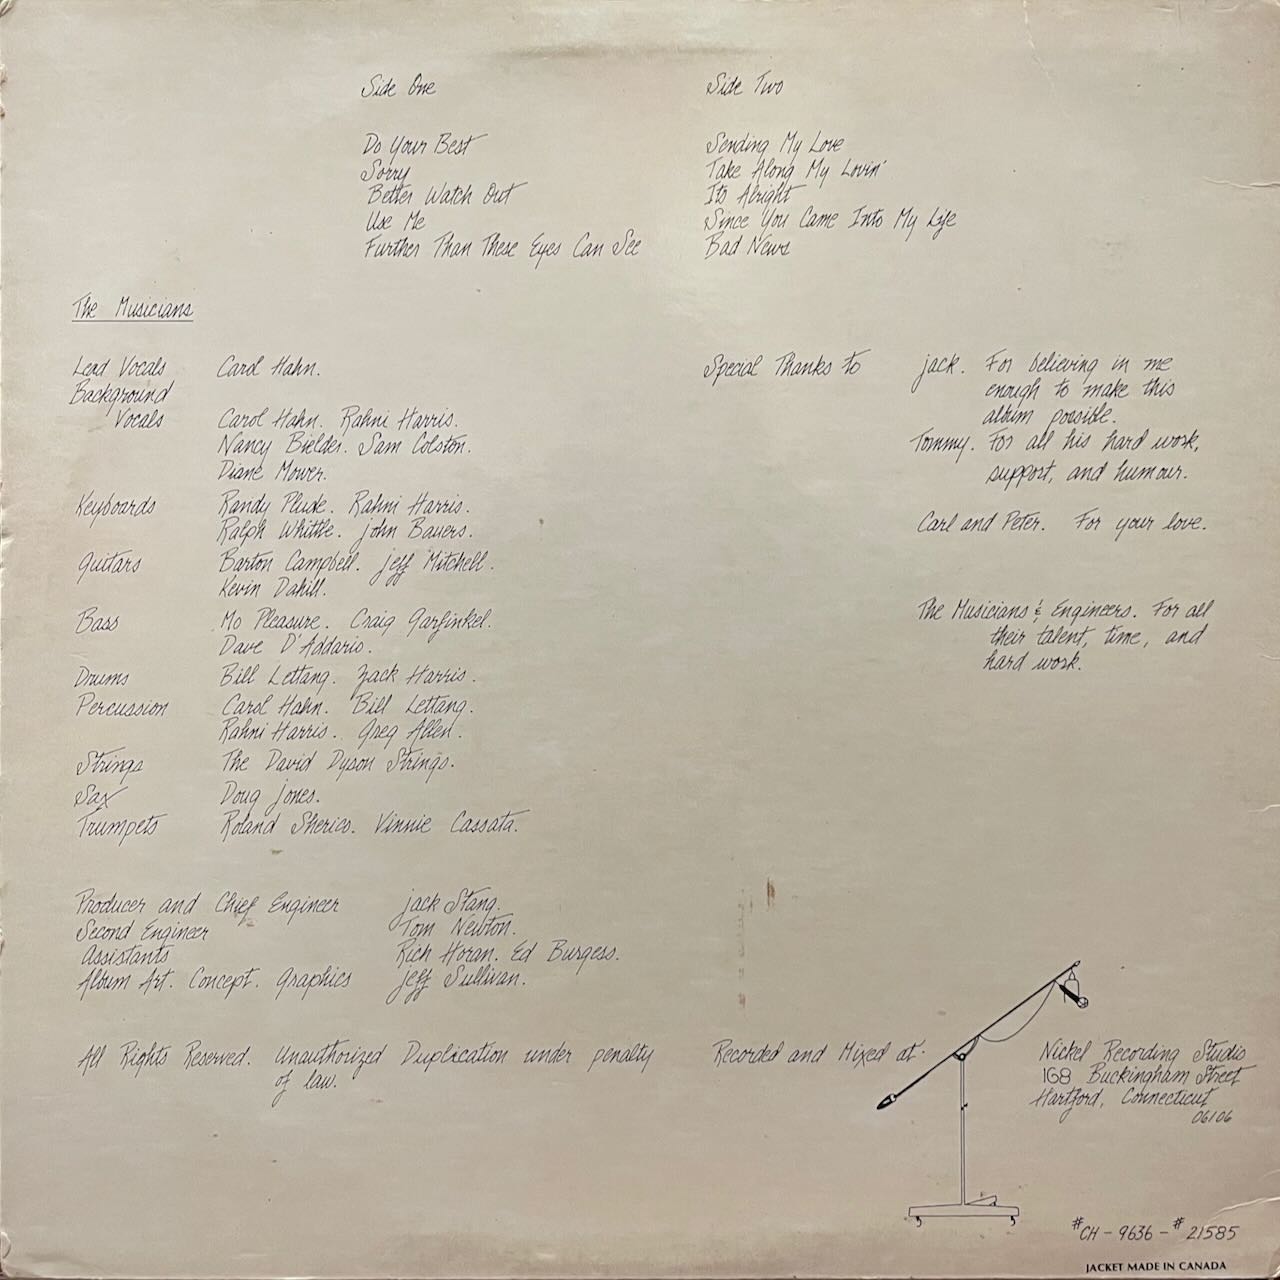 Side One
Do Your Best
Sorry
Better Watch Out
Use Me
Further Than These Eyes Can See
Side Two
Sending My Love
Take Along My Lovin'
Its Alright
Since You Came Into My Life
Bad News
The Musicians
Lead Vocals Carol Hahn.
Background
Vocals Carol Hahn. Rahni Harris.
Nancy Bielder. Sam Colston.
Diane Mower.
Keyboards Randy Plude. Rahni Harris.
Ralph Whittle. John Bauers.
Guitars Barton Campbell. Jeff Mitchell.
Kevin Dahill.
Bass Mo Pleasure. Craig Garfinkel.
Dave D'Addario.
Drums Bill Lettang. Zack Harris.
Percussion Carol Hahn. Bill Lettang.
Rahni Harris. Greg Allen.
Strings The David Dyson Strings.
Sax Doug Jones.
Trumpets Roland Sherico. Vinnie Cassata.
Special Thanks to Jack. For believing in me
enough to make this
album possible.
Tommy. For all his hard work,
support, and humour.
Carl and Peter. For your love.
The Musicians & Engineers. For all
their talent, time, and
hard work.
Producer and Chief Engineer Jack Stang.
Second Engineer Tom Newton.
Assistants Rich Horan. Ed Burgess.
Album Art. Concept. Graphics Jeff Sullivan.
All Rights Reserved. Unauthorized Duplication under penalty
of law.
Recorded and Mixed at.
Nickel Recording Studio
168 Buckingham Street
Hartford, Connecticut
06106
#CH - 9636 - #21585
JACKET MADE IN CANADA